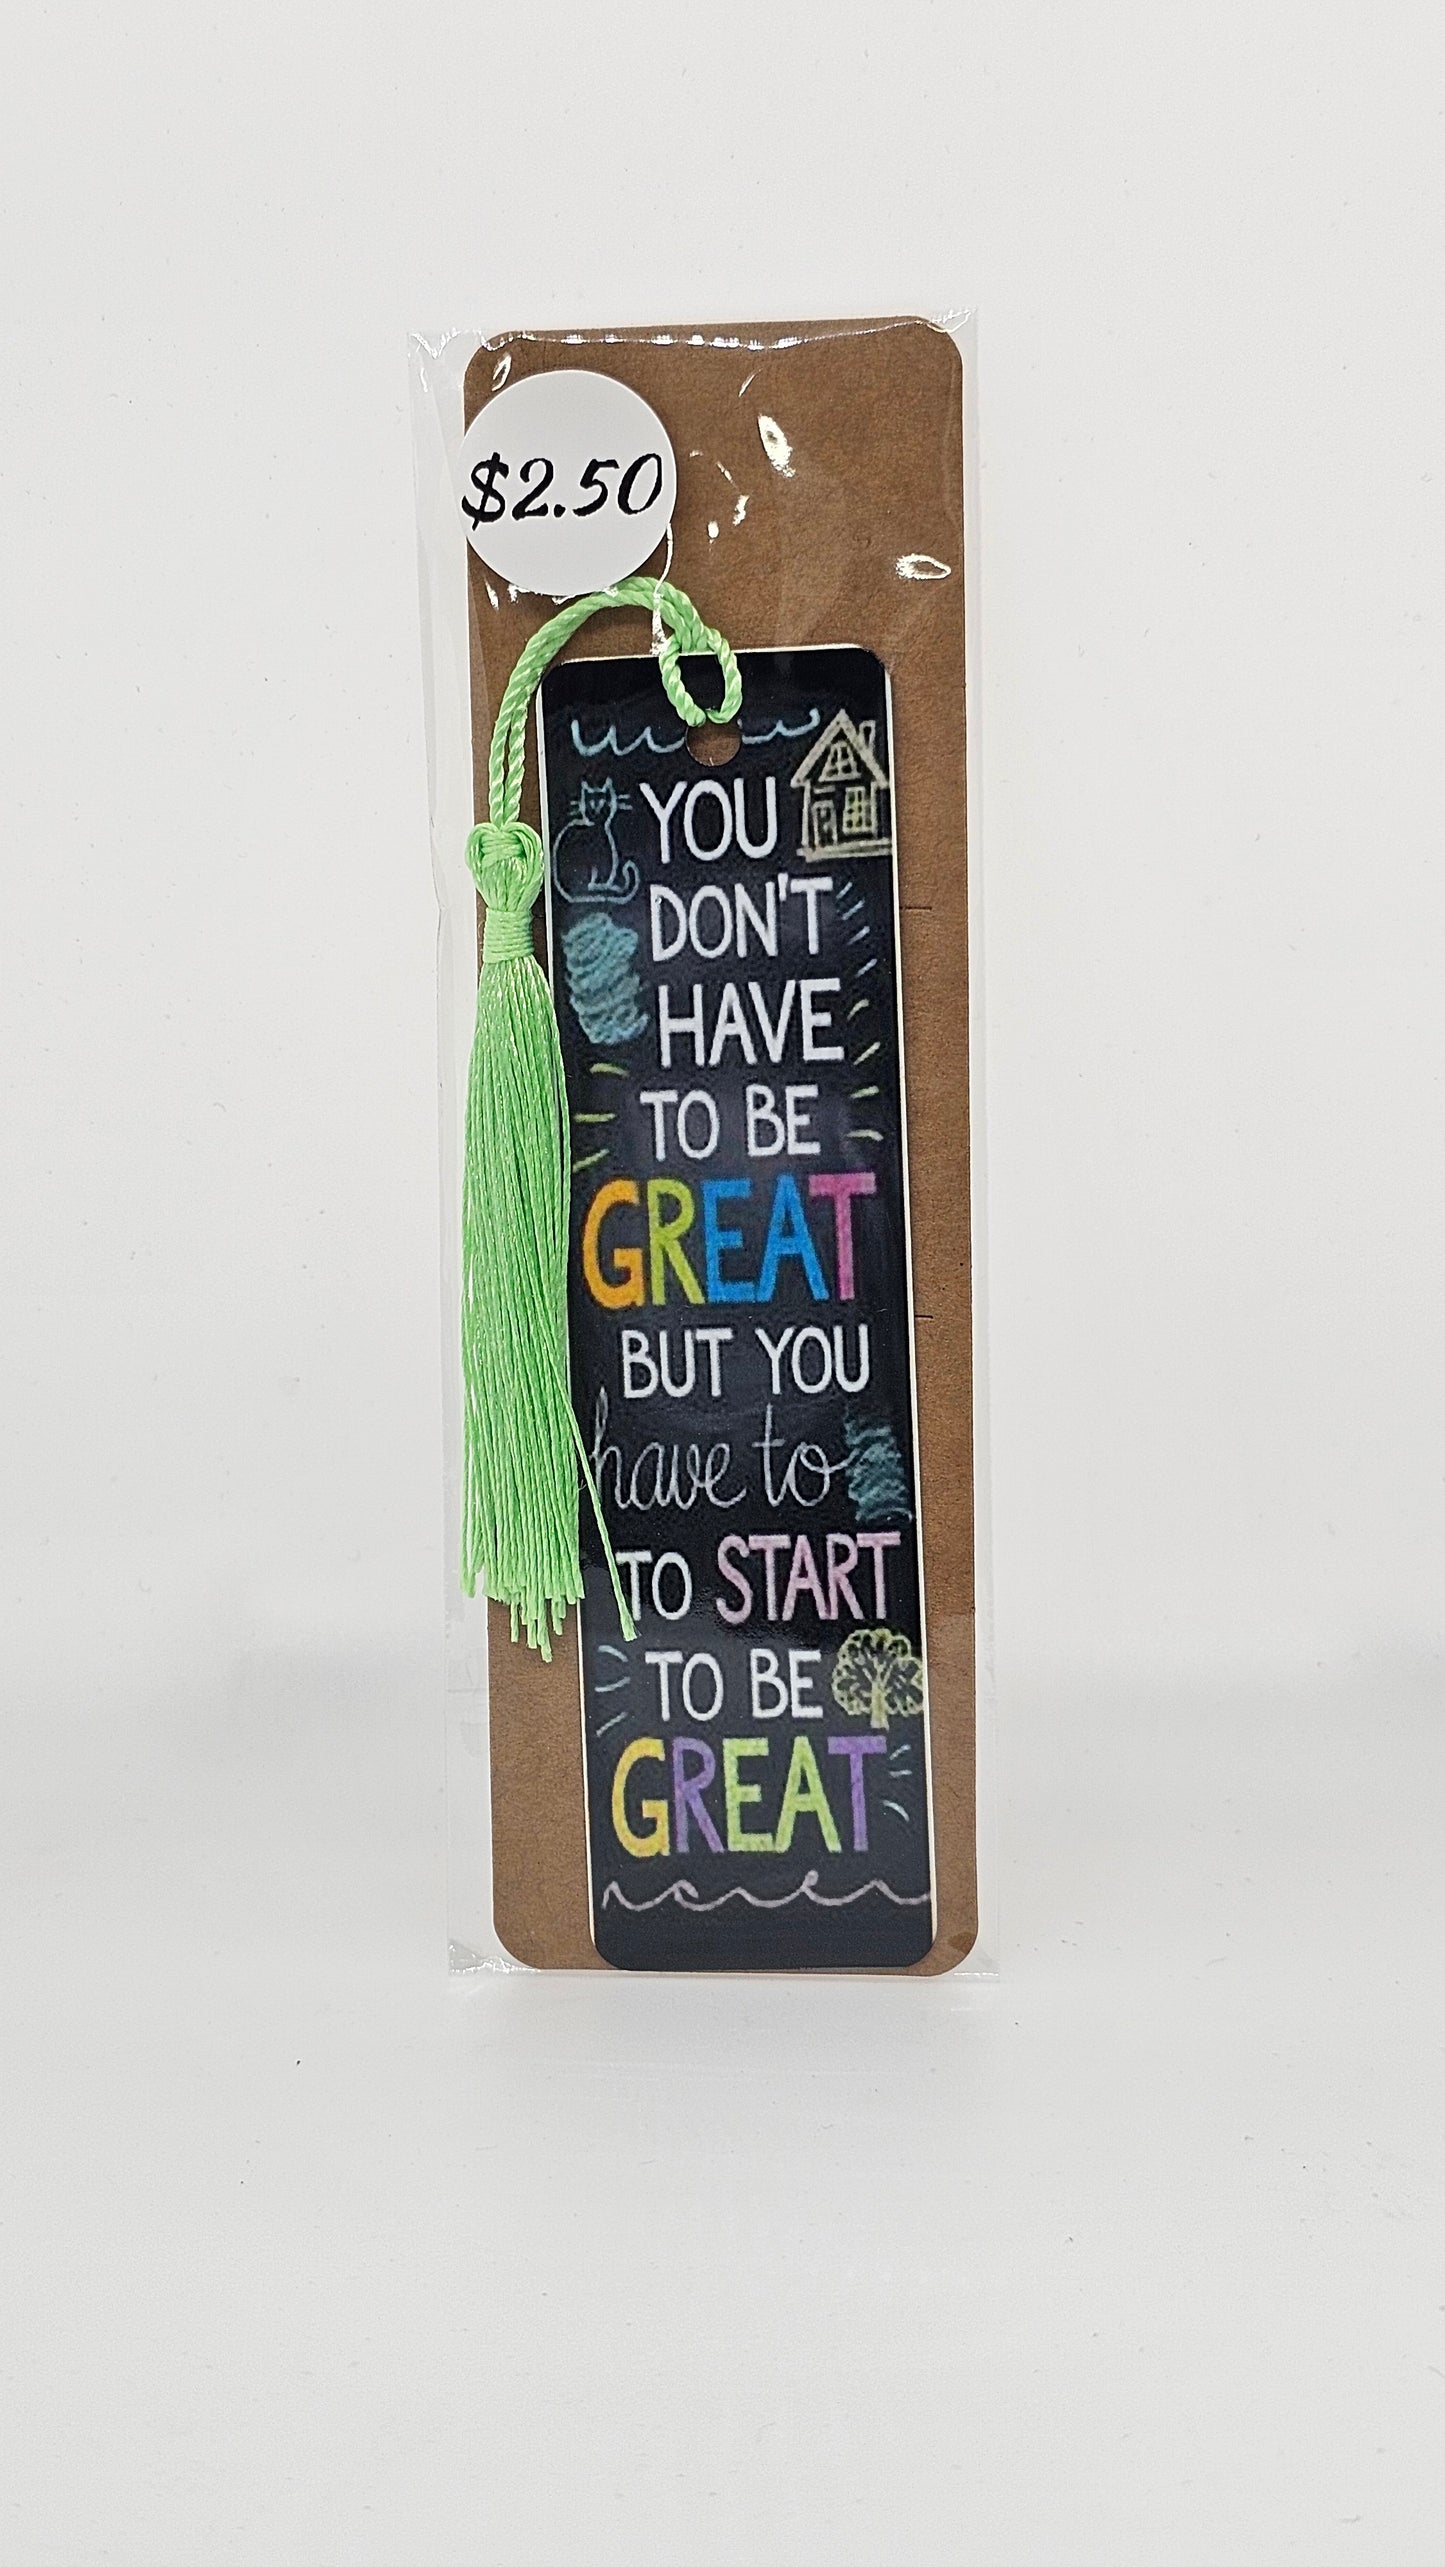 $2.50
YOU
DON'T
HAVE
TO BE
GREAT
BUT YOU
have to
TO START
TO BE
GREAT